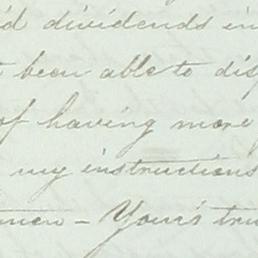 dividends in
been able to dis
of having more
my instructions
- Yours tru